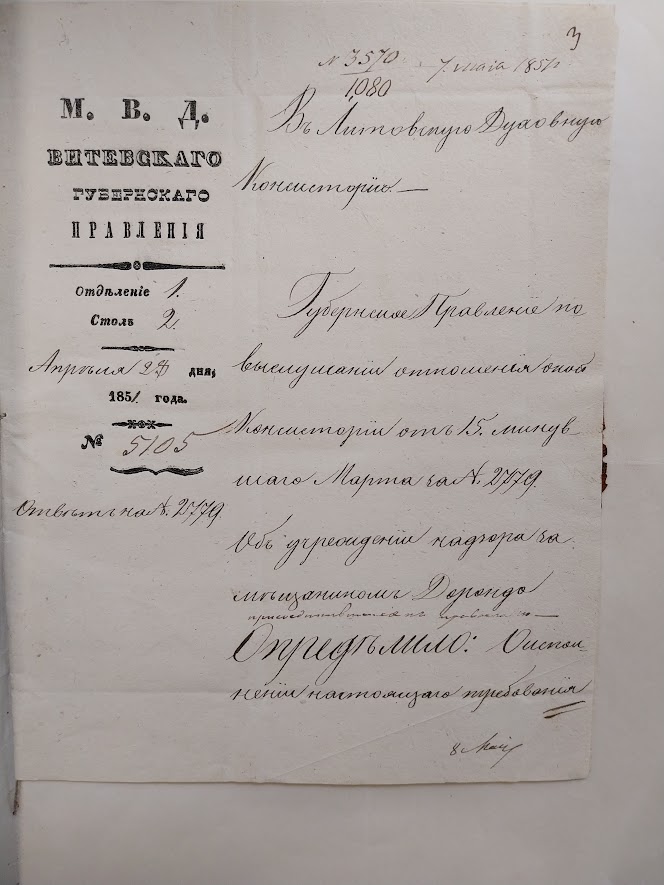 3
№ 3570 7 маія 1851
1080
М. В. Д.
ВИТЕБСКАГО
ГУБЕРНСКАГО
ПРАВЛЕНІЯ
Отдѣленіе 1.
Столъ 2.
Апрѣля 28 дня,
1851 года.
№ 5105
Отвѣтъ на №. 2779.
Въ Литовскую Духовную
Консисторію.—
Губернское Правленіе по
выслушаніи отношенія оной
Консисторіи отъ 15. минув
шаго Марта за №. 2779.
Объ учрежденіи надзора за
мѣщаниномъ Дорондо
Опредѣлило: О испол
неніи настоящаго требованія
8 Маія